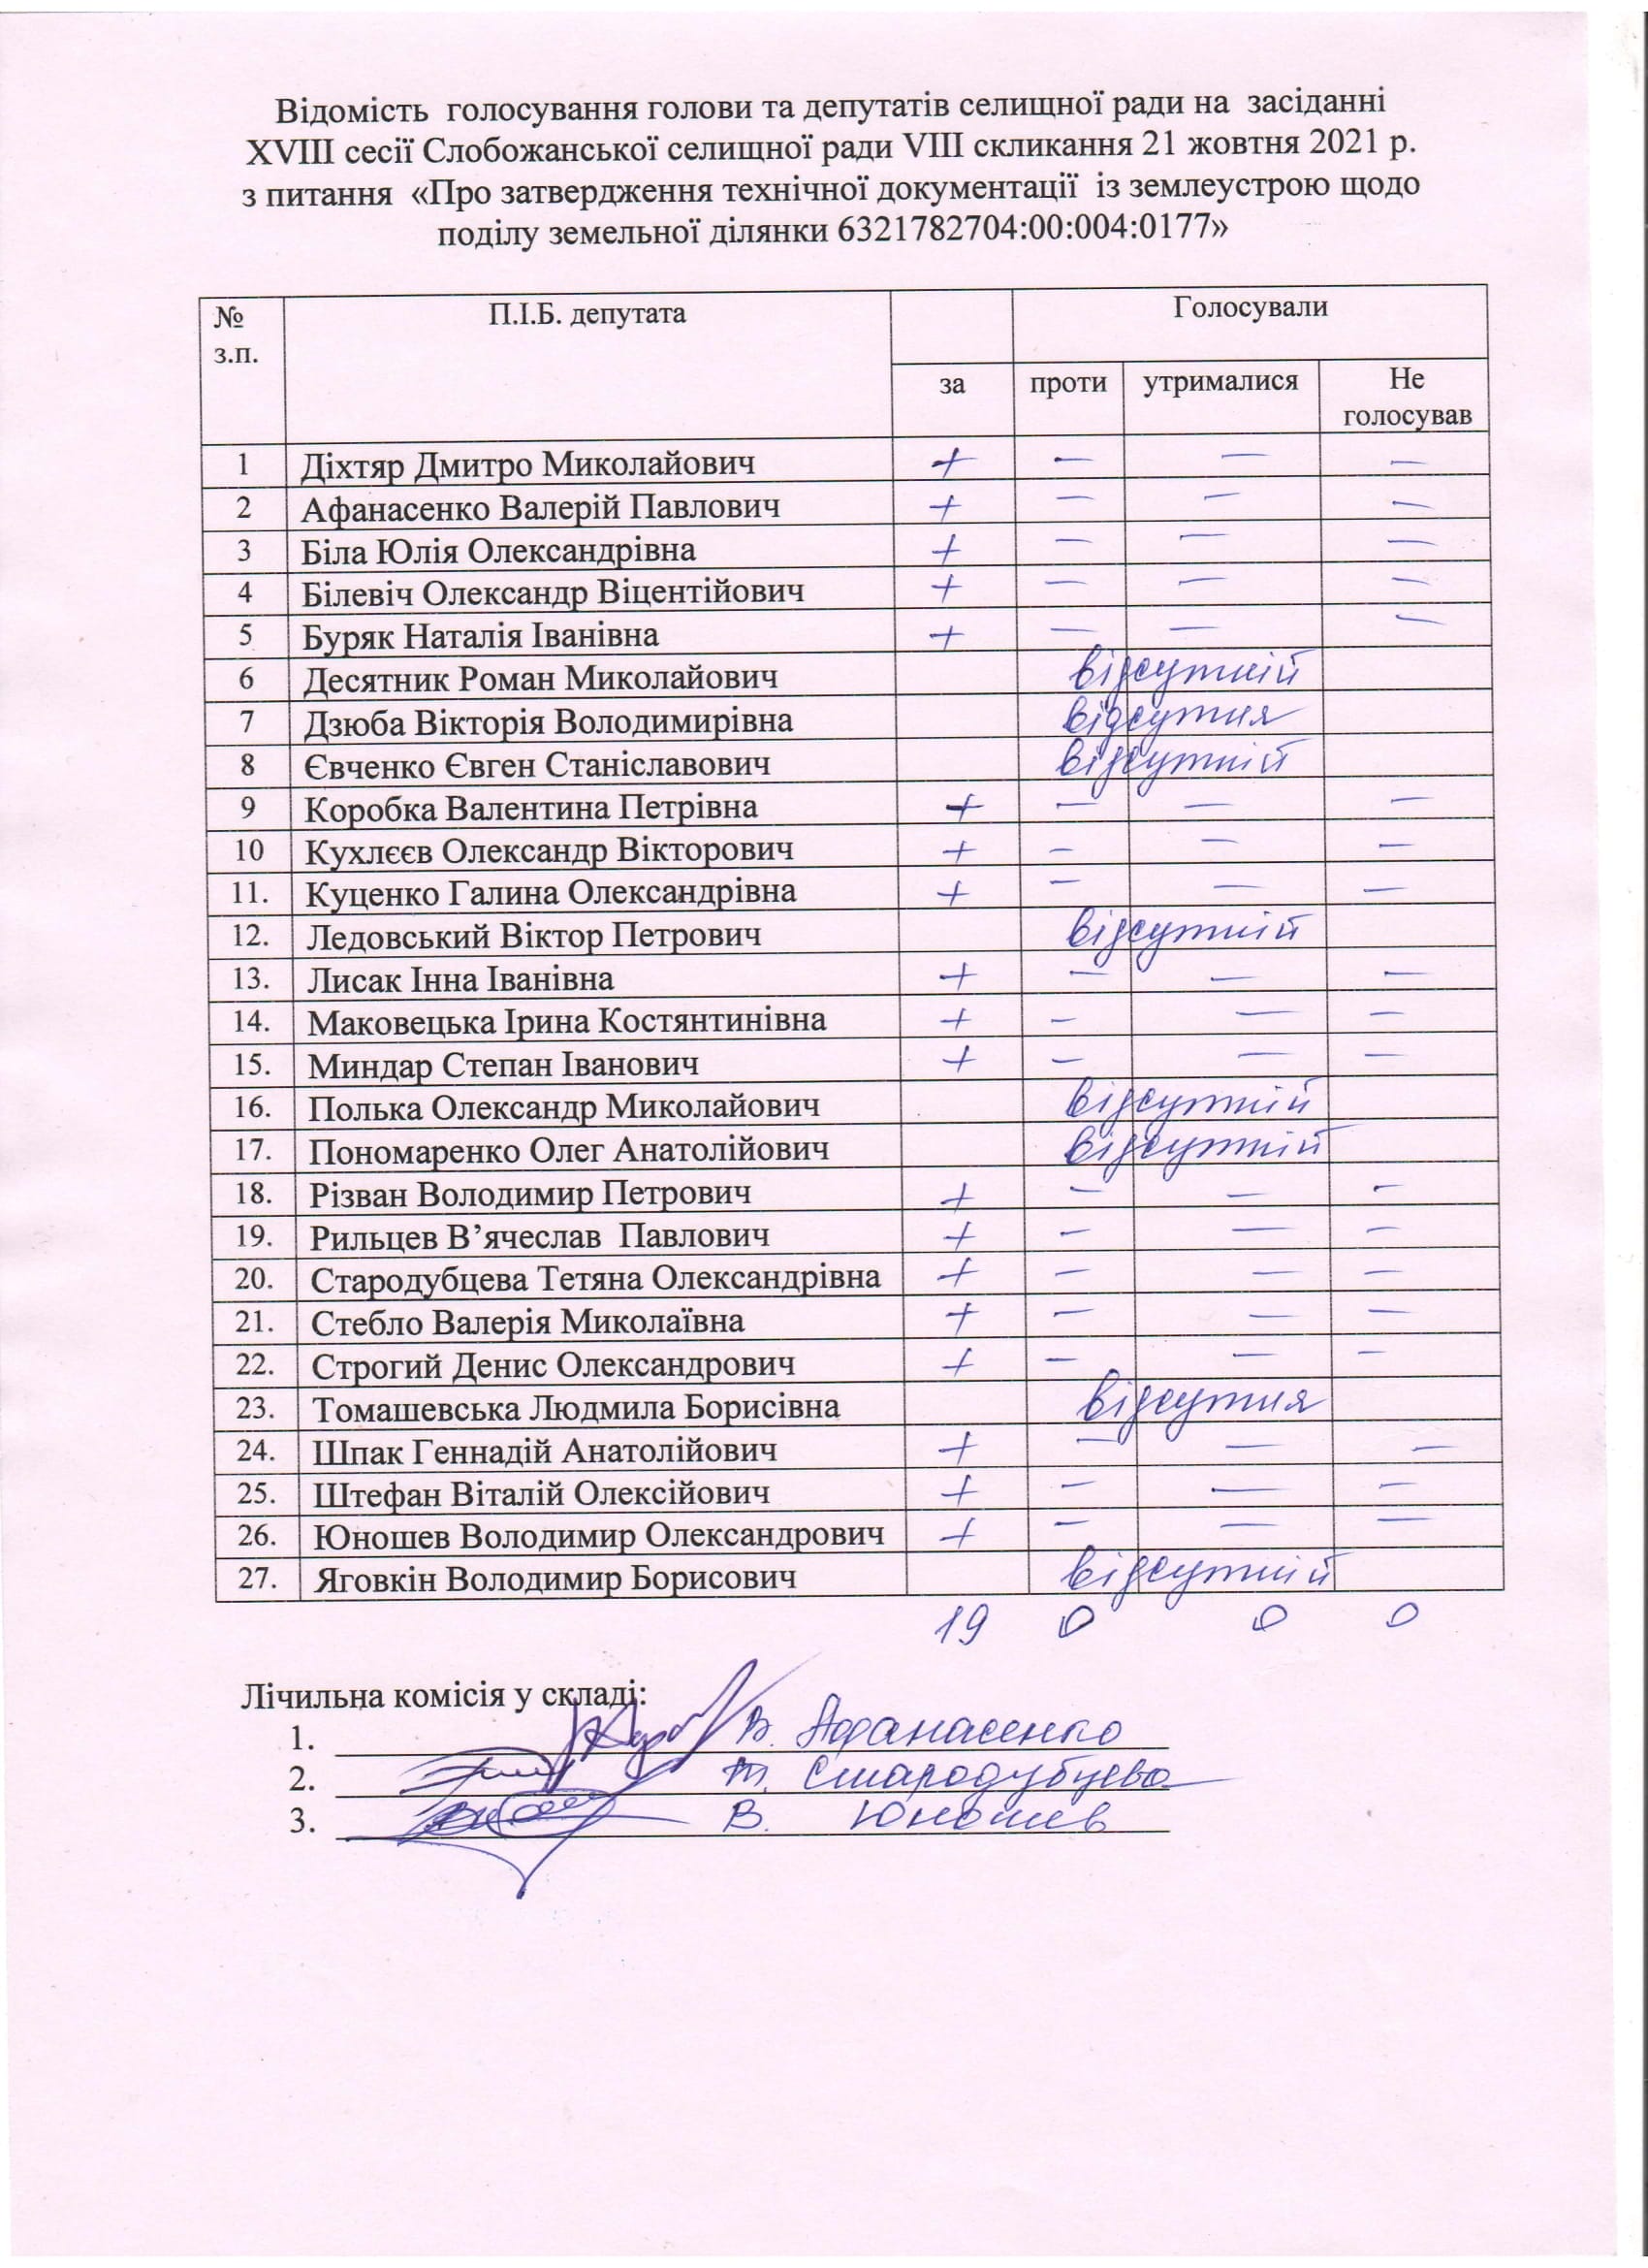 Відомість голосування голови та депутатів селищної ради на засіданні
XVIII сесії Слобожанської селищної ради VIII скликання 21 жовтня 2021 р.
з питання «Про затвердження технічної документації із землеустрою щодо
поділу земельної ділянки 6321782704:00:004:0177»
№ з.п. П.І.Б. депутата Голосували
за проти утрималися Не голосував
1 Діхтяр Дмитро Миколайович + — — —
2 Афанасенко Валерій Павлович + — — —
3 Біла Юлія Олександрівна + — — —
4 Білевіч Олександр Віцентійович + — — —
5 Буряк Наталія Іванівна + — — —
6 Десятник Роман Миколайович відсутній
7 Дзюба Вікторія Володимирівна відсутня
8 Євченко Євген Станіславович відсутній
9 Коробка Валентина Петрівна + — — —
10 Кухлєєв Олександр Вікторович + — — —
11. Куценко Галина Олександрівна + — — —
12. Ледовський Віктор Петрович відсутній
13. Лисак Інна Іванівна + — — —
14. Маковецька Ірина Костянтинівна + — — —
15. Миндар Степан Іванович + — — —
16. Полька Олександр Миколайович відсутній
17. Пономаренко Олег Анатолійович відсутній
18. Різван Володимир Петрович + — — —
19. Рильцев В’ячеслав Павлович + — — —
20. Стародубцева Тетяна Олександрівна + — — —
21. Стебло Валерія Миколаївна + — — —
22. Строгий Денис Олександрович + — — —
23. Томашевська Людмила Борисівна відсутня
24. Шпак Геннадій Анатолійович + — — —
25. Штефан Віталій Олексійович + — — —
26. Юношев Володимир Олександрович + — — —
27. Яговкін Володимир Борисович відсутній
19 0 0 0
Лічильна комісія у складі:
1. В. Афанасенко
2. Т. Стародубцева
3. В. Юношев